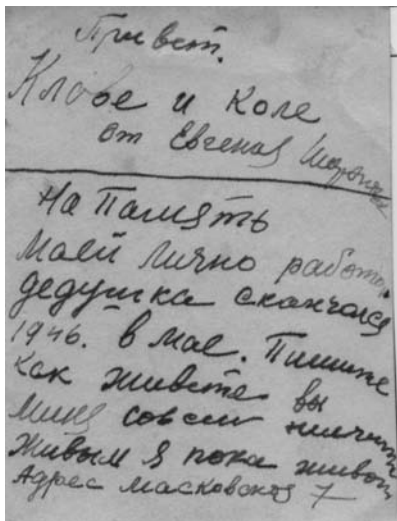 Привет.
Клове и Коле
от Евгения
На Память
маей лично работы.
дедушка скончался
1946. в мае. Пишите
как живете вы
миня совсем
живым я пока живой
Адрес масковская 7